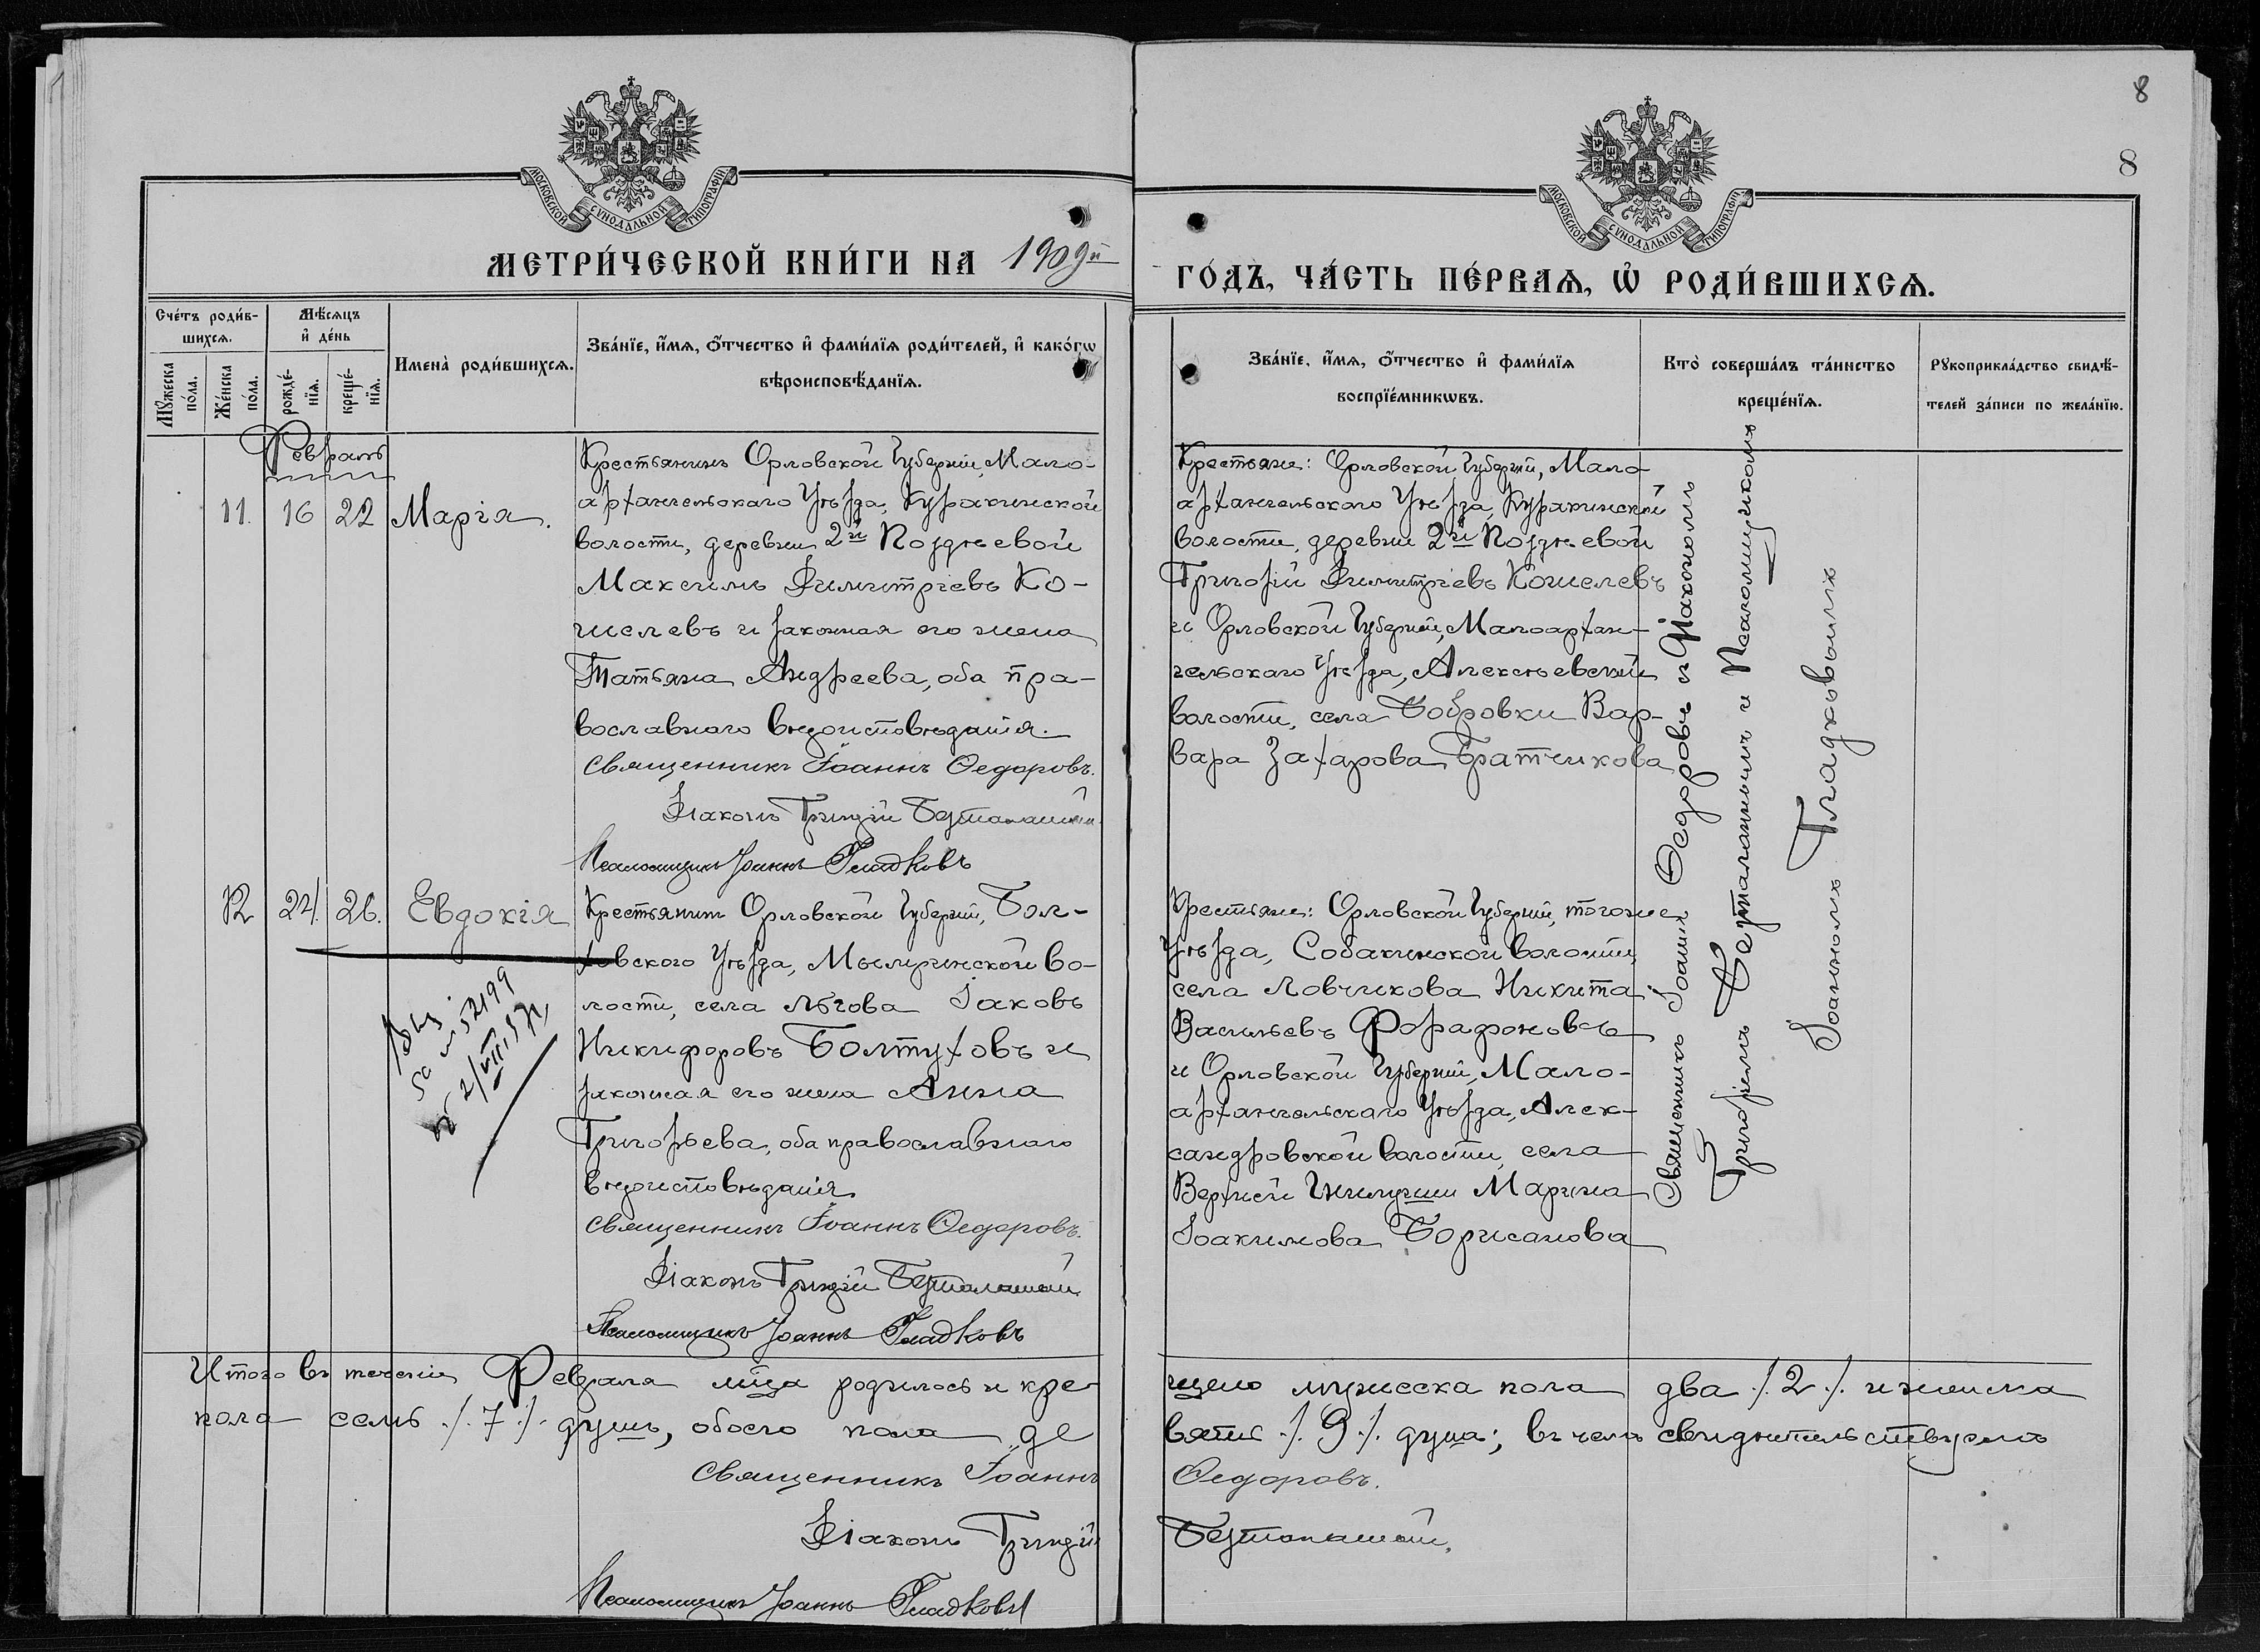 8
8
МОСКОВСКОЙ СУНОДАЛЬНОЙ ТИПОГРАФІИ
МОСКОВСКОЙ СУНОДАЛЬНОЙ ТИПОГРАФІИ
МЕТРИ́ЧЕСКОЙ КНИ́ГИ НА 1909й
ГО́ДЪ, ЧА́СТЬ ПЕ́РВАѦ, Ѡ҆ РОДИ́ВШИХСѦ.
Сче́тъ роди́в-
шихсѧ.
Мꙋ́жеска
по́ла.
Же́нска
по́ла.
Мѣ́сѧцъ
и҆ де́нь
рожде́-
нїѧ.
креще́-
нїѧ.
Имена̀ роди́вшихсѧ.
Зва́нїе, и҆́мѧ, ѻ҆́тчество и҆ фами́лїѧ роди́телей, и҆ како́гѡ
вѣроисповѣ́данїѧ.
Зва́нїе, и҆́мѧ, ѻ҆́тчество и҆ фами́лїѧ
воспрїе́мникѡвъ.
Кто̀ соверша́лъ та́инство
креще́нїѧ.
Рꙋкоприкла́дство свидѣ́-
телей за́писи по жела́нїю.
Февраль
11. 16 22 Марія.
Крестьянинъ Орловской Губерніи, Мало-
архангельскаго Уѣзда, Куракинской
волости, деревни 2й Позднѣевой
Максимъ Димитріевъ Ко-
шелевъ и законная его жена
Татьяна Андреева, оба пра-
вославнаго вѣроисповѣданія.
Священникъ Іоаннъ Ѳедоровъ.
Діаконъ Григорій
Псаломщикъ Іоаннъ Гладковъ
Крестьяне: Орловской Губерніи, Мало-
архангельскаго Уѣзда, Куракинской
волости, деревни 2й Позднѣевой
Григорій Димитріевъ Кошелевъ
и Орловской Губерніи, Малоархан-
гельскаго Уѣзда, Алексѣевской
волости, села Бобровки Вар-
вара Захарова Братчикова
Священникъ Іоаннъ Ѳедоровъ съ Діакономъ
Григоріемъ и Псаломщикомъ
Іоанномъ Гладковымъ
12 24. 26. Евдокія
Крестьянинъ Орловской Губерніи, Бол-
ховского Уѣзда, Мымринской во-
лости, села Льгова Іаковъ
Никифоровъ Болтуховъ и
законная его жена Анна
Григорьева, оба православнаго
вѣроисповѣданія.
Священникъ Іоаннъ Ѳедоровъ.
Діаконъ Григорій
Псаломщикъ Іоаннъ Гладковъ
за № 52199
Крестьяне: Орловской Губерніи, тогоже
Уѣзда, Собакинской волости,
села Ловчикова Никита
Васильевъ Форафоновъ
и Орловской Губерніи, Мало-
архангельскаго Уѣзда, Алек-
сандровской волости, села
Верхней Гнилуши Марина
Іоакимова Борисанова
Итого въ теченіи Февраля мца родилось и кре-
щено мужеска пола два ./. 2 ./. и женска
пола семь ./. 7 ./. душъ, обоего пола де
вять ./. 9 ./. душъ; въ чемъ свидѣтельствуемъ
Священникъ Іоаннъ Ѳедоровъ.
Діаконъ Григорій
Псаломщикъ Іоаннъ Гладковъ